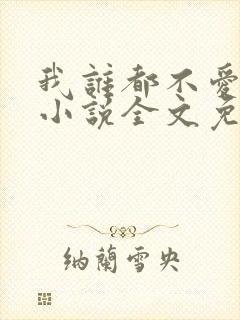 我誰都不愛
小說全文免
納蘭雪央